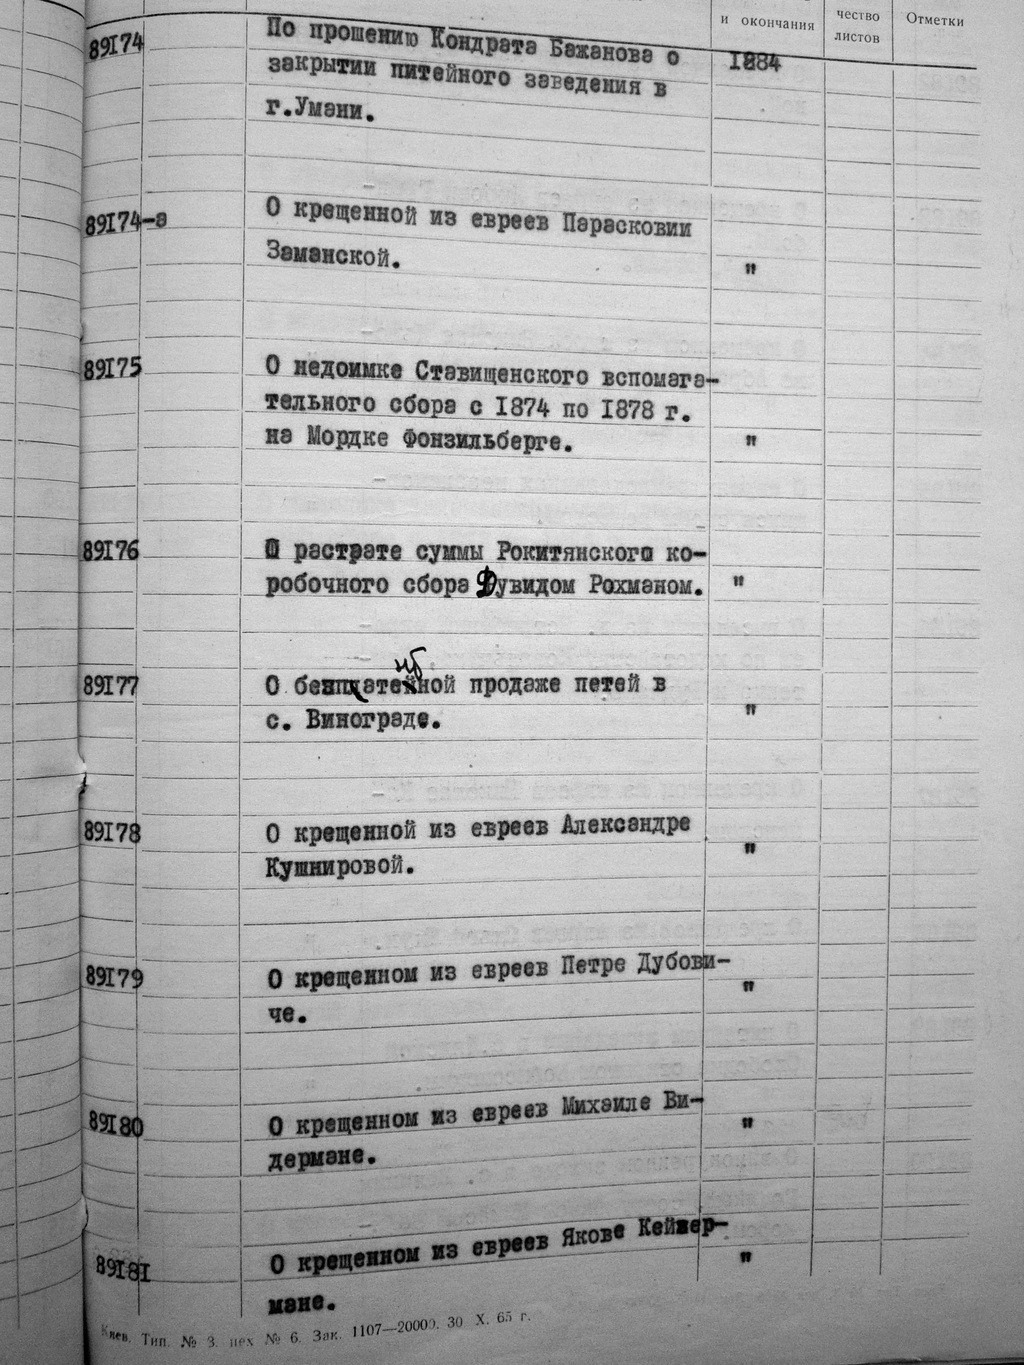 и окончания
чество
листов
Отметки
89174
По прошению Кондрата Бажанова о
1884
закрытии питейного заведения в
г.Умани.
89174-а
О крещенной из евреев Парасковии
Заманской.
"
89175
О недоимке Ставищенского вспомага-
тельного сбора с 1874 по 1878 г.
на Мордке Фонзильберге.
"
89176
О растрате суммы Рокитянского ко-
робочного сбора Дувидом Рохманом.
"
89177
О продаже петей в
с. Винограде.
"
89178
О крещенной из евреев Александре
Кушнировой.
"
89179
О крещенном из евреев Петре Дубови-
че.
"
89180
О крещенном из евреев Михаиле Ви-
дермане.
"
89181
О крещенном из евреев Якове
мане.
"
Киев. Тип. № 3. цех № 6. Зак. 1107—20000. 30 X. 65 г.